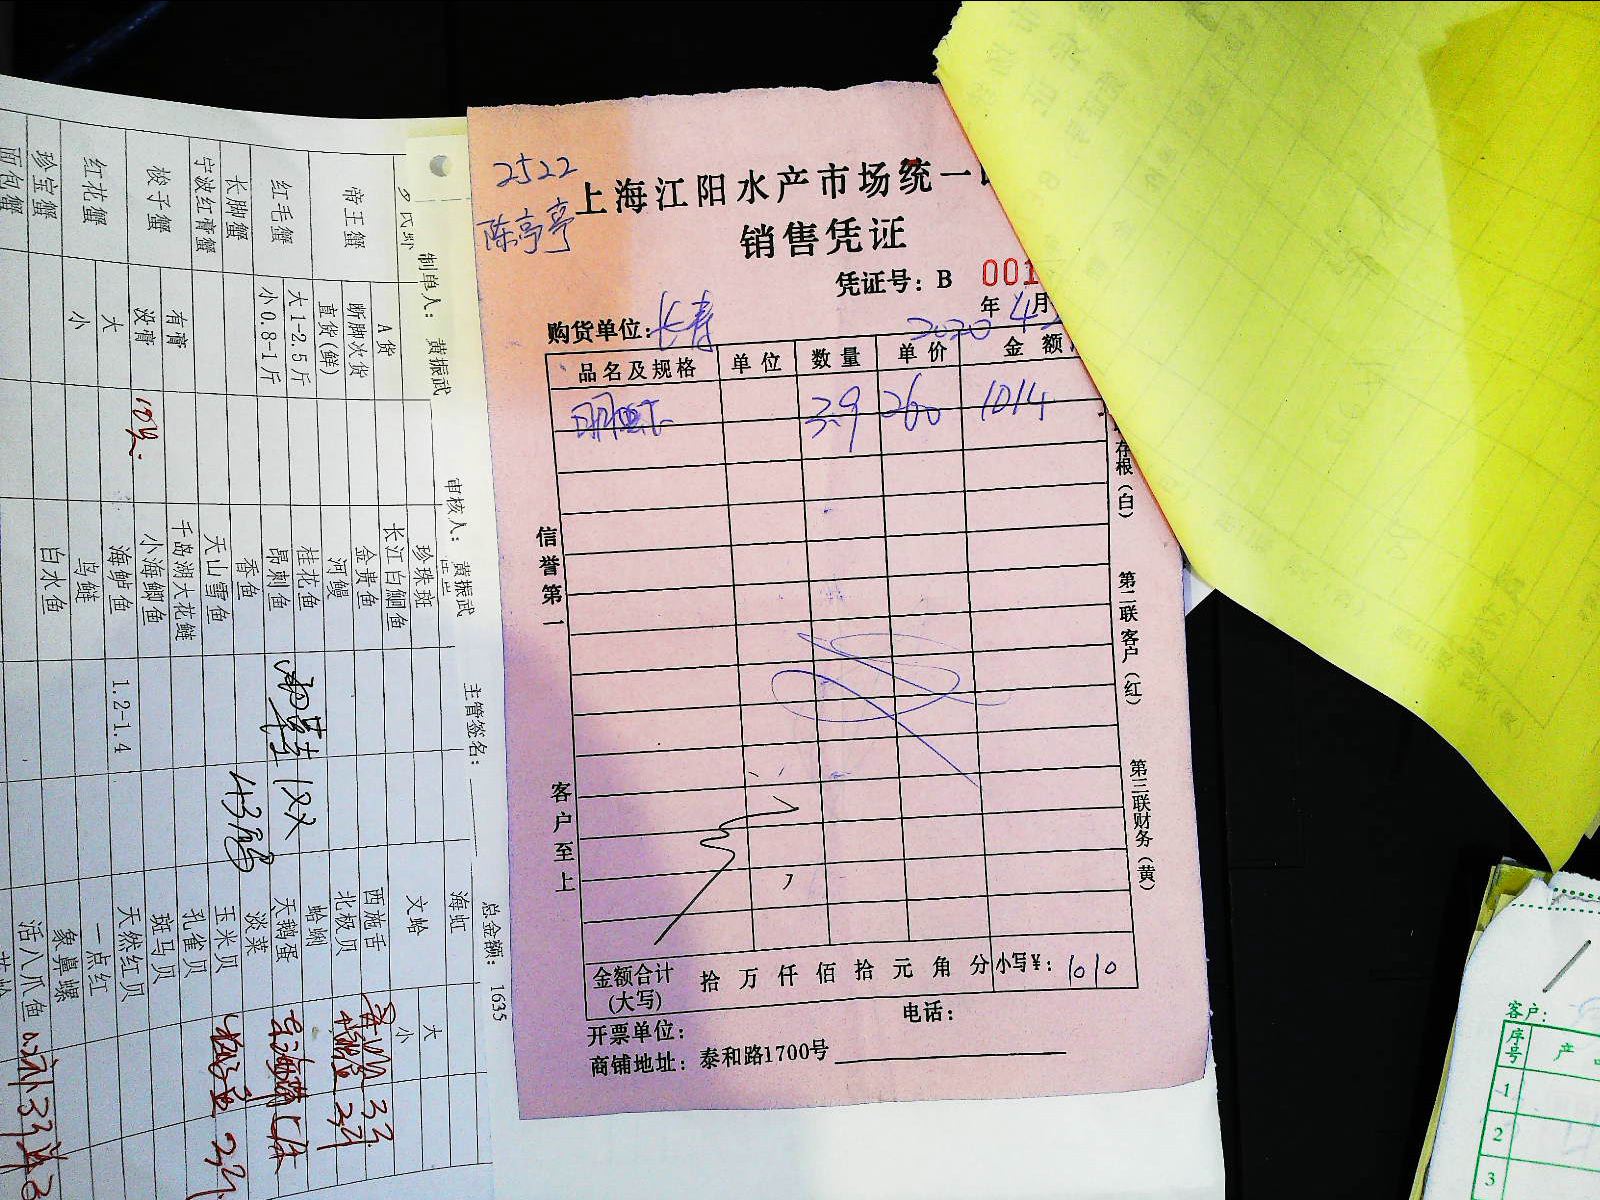 2522
陈亭亭
上海江阳水产市场统一
销售凭证
凭证号：B 001
2020年4月
购货单位：长寿
品名及规格 单位 数量 单价 金额
明虾 3.9 260 1014
信誉第一
客户至上
存根（白）
第二联客户（红）
第三联财务（黄）
金额合计（大写） 拾万仟佰拾元角分 小写¥：1010
开票单位：
电话：
商铺地址：泰和路1700号
制单人： 黄振武
审核人： 黄振武
主管签名：
总金额： 1635
帝王蟹 A货
断脚次货
直货(鲜)
红毛蟹 大1-2.5斤
小0.8-1斤
长脚蟹
宁波红膏蟹
梭子蟹 有膏
没膏
红花蟹 大
小
珍宝蟹
面包蟹
珍珠斑
长江白鮰鱼
金贵鱼
河鳗
桂花鱼
昂刺鱼
香鱼
天山雪鱼
千岛湖大花鲢
小海鲫鱼
海鲈鱼 1.2-1.4
鸟鲢
白水鱼
雨鞋1双
43码
海虹
文蛤 大
小
西施舌
北极贝
蛤蜊
天鹅蛋
淡菜
玉米贝
孔雀贝
斑马贝
天然红贝
一点红
象鼻螺
活八爪鱼
客户：
序号 产
1
2
3